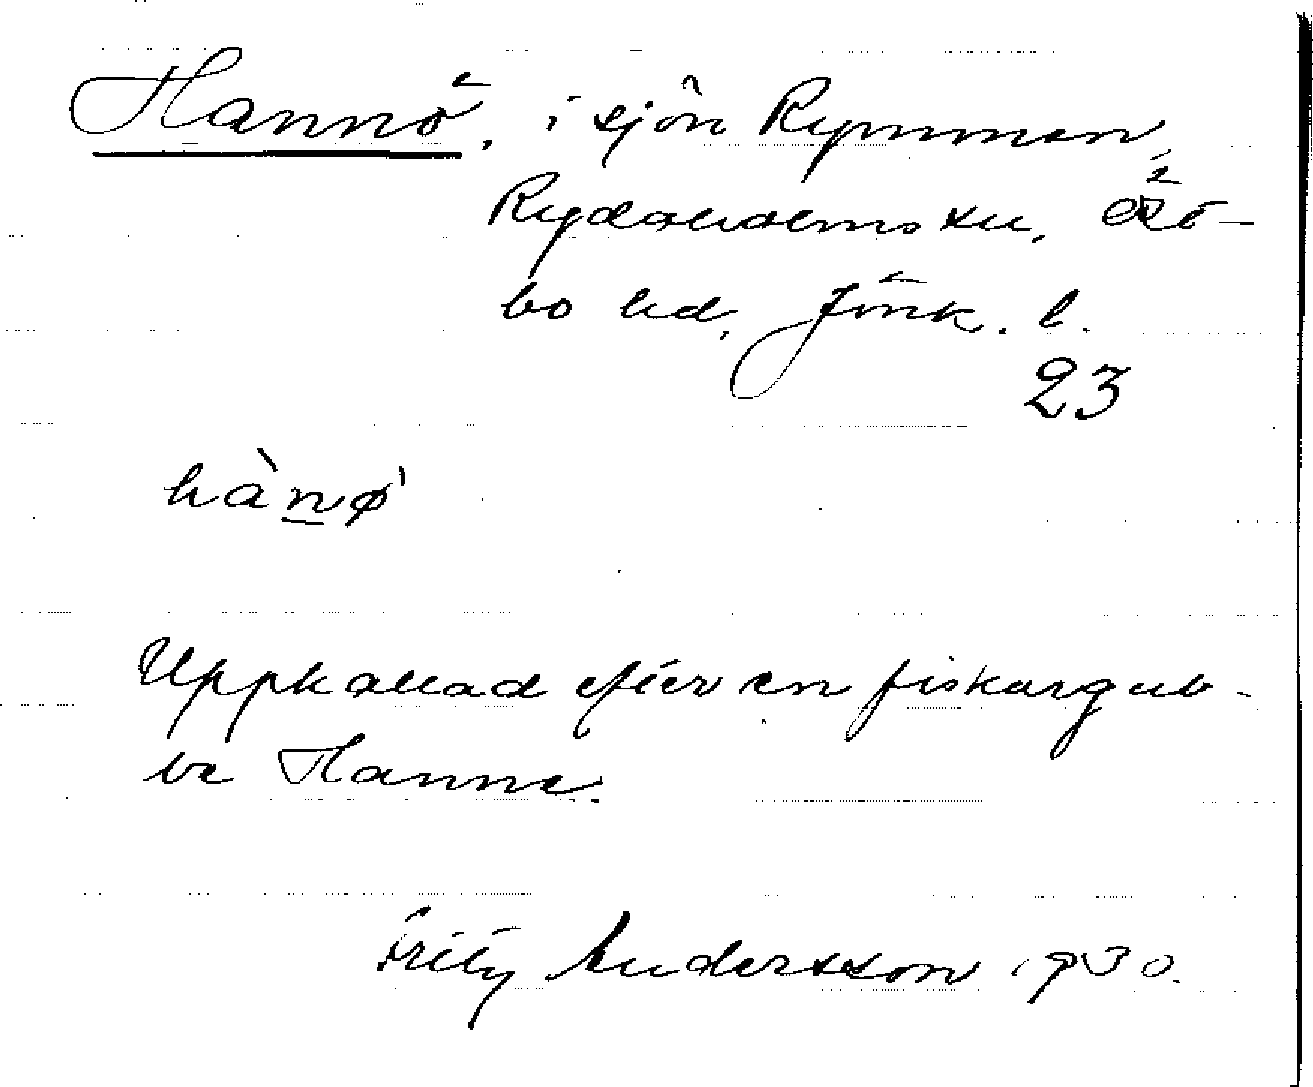 Hannö, i sjön Rymmen,
Rydaholms sn, Östbo
bo hd, Jönk. l.
23
hànø̀
Uppkallad efter en fiskargub-
be Hanne.
Fritz Andersson 1930.